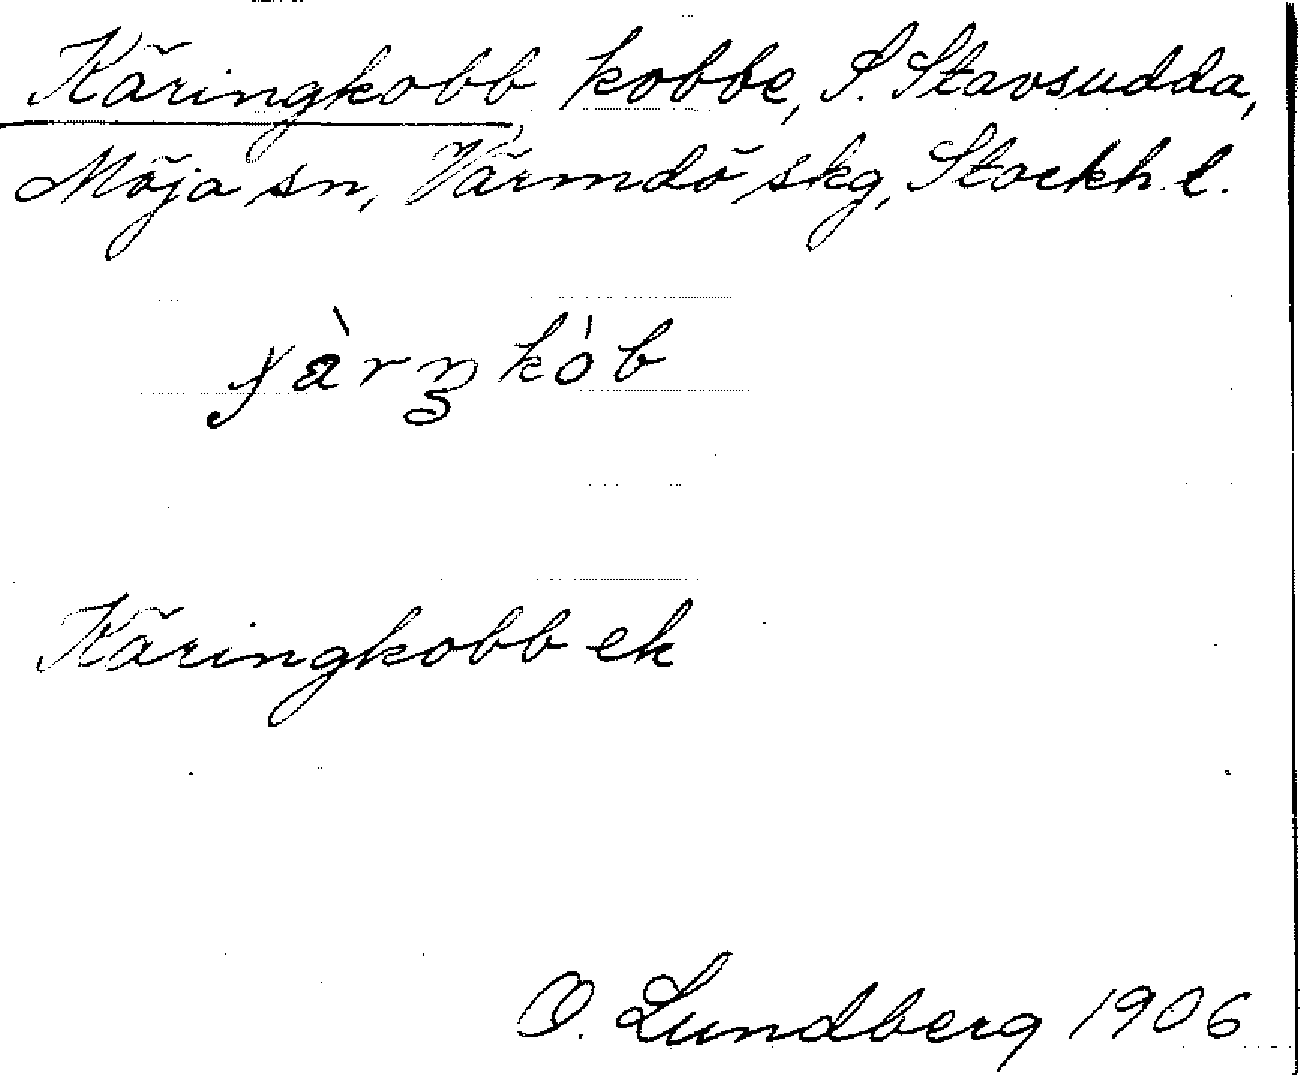 Käringkobb kobbe, S. Stavsudda,
Möja sn, Värmdö skg, Stockh. l.
Käringkobb ek
O. Lundberg 1906